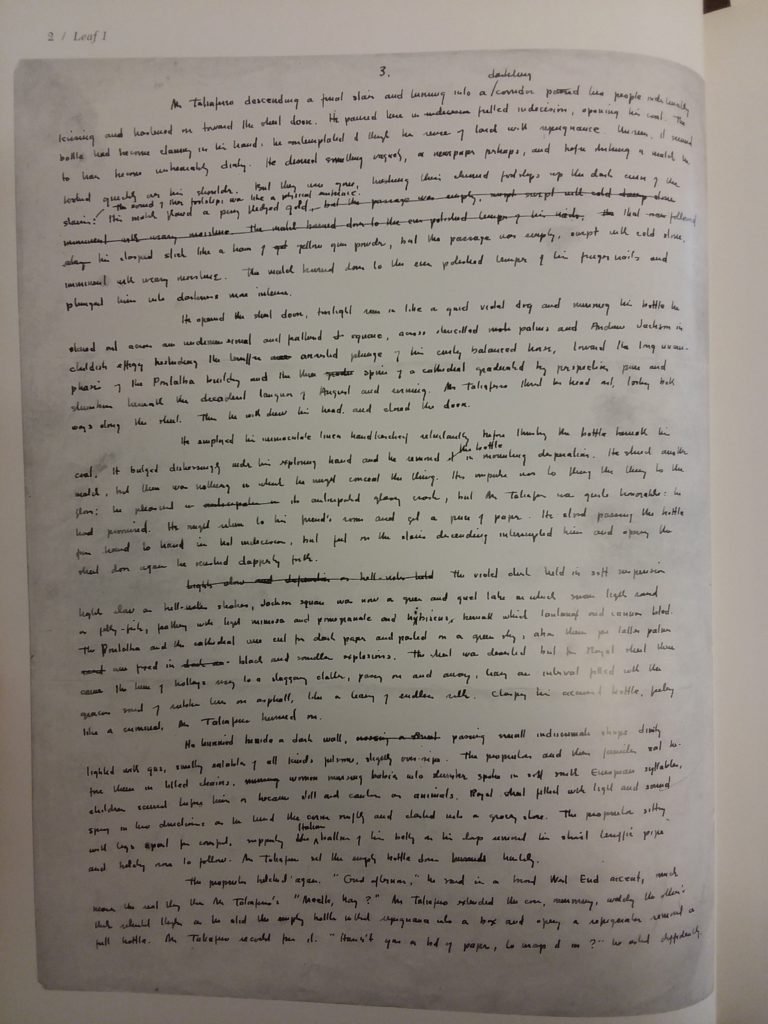 2 / Leaf 1
3.
darkling
Mr Taliaferro descending a final stair and turning into a corridor passed two people indistinctly
kissing and hastened on toward the street door. He paused here in indecision, opening his coat. The
bottle had become clammy in his hand. he contemplated it through his sense of touch with repugnance. Unseen, it seemed
to have become unbearably dirty. He desired something vaguely, a newspaper perhaps, and before striking a match he
looked quickly over his shoulder. But they were gone, their footsteps up the dark curve of the
the sound of their footsteps was like a physical embrace.
stair: His match flared a puny fledged gold, but the passage was empty, swept with cold stone
imminent with weary moisture. The match burned down to the even polished temper of his nails, that now followed
his clasped stick like a train of yellow gun powder, but the passage was empty, swept with cold stone,
imminent with weary moisture. The match burned down to the even polished temper of his finger nails and
plunged him into darkness more intense.
He opened the street door, twilight ran in like a quiet violet dog and nursing his bottle he
stared out across an and square, across stencilled palms and Andrew Jackson in
childish effigy bestriding the arrested plunge of his curly balanced horse, toward the long
of the Pontalba building and the three spires of a cathedral graduated by perspective, pure and
slumbrous beneath the decadent languor of August and evening. Mr Taliaferro thrust his head out, looking both
ways along the street. Then he withdrew his head and closed the door.
He employed his immaculate linen handkerchief reluctantly before thrusting the bottle beneath his
the bottle
coat. It bulged distressingly under his exploring hand and he removed in mounting desperation. He struck another
match, but there was nothing in which he might conceal the thing. His impulse was to fling the thing to the
floor; he pleasured in its anticipated glassy crash, but Mr Taliaferro was quite honorable: he
had promised. He might return to his friend's room and get a piece of paper. He stood passing the bottle
from hand to hand in hot indecision, but feet on the stairs descending interrupted him and opening the
street door again he dapperly forth.
The violet dusk held in soft suspension
lights slow as bell-notes shaken, Jackson square was now a green and quiet lake in which swam lights round
as jelly-fish, with light mimosa and pomegranate and hybiscus, beneath which lantana and cannas bled.
The Pontalba and the cathedral were cut from dark paper and pasted on a green sky; above them taller palms
were fixed in black and soundless explosions. The street was deserted but from Royal street there
came the hum of trolleys rising to a staggering clatter, passing on and away, leaving an interval filled with the
gracious sound of rubber tires on asphalt, like a tearing of endless silk. Clasping his accursed bottle, feeling
like a criminal, Mr Taliaferro hurried on.
He hurried beside a dark wall, passing small indiscriminate shops dimly
lighted with gas, smelling of all kinds, slightly over-ripe. The proprietors and their families sat be-
fore them in tilted chairs, women nursing babies into slumber spoke in soft south European syllables,
children scurried before him or became still and as animals. Royal street filled with light and sound
sprang in two directions as he turned the corner swiftly and darted into a grocery store. The proprietor sitting
Italian
with legs apart for comfort, supporting the balloon of his belly on his lap removed his short terrific pipe
and belching rose to follow. Mr Taliaferro set the empty bottle down hastily.
The proprietor belched again. "Good afternoon," he said in a broad West End accent, much
nearer the real thing than Mr Taliaferro's "Meelk, hay?" Mr Taliaferro extended the coin, murmuring, watching the other's
thick reluctant thighs as he slid the empty bottle without repugnance into a box and opening a refrigerator removed a
full bottle. Mr Taliaferro recoiled from it. "Haven't you a bit of paper, to wrap it in?" he asked diffidently.